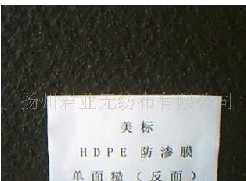 扬州君业无纺布有限公司
美标
HDPE防渗膜
单面糙（反面）